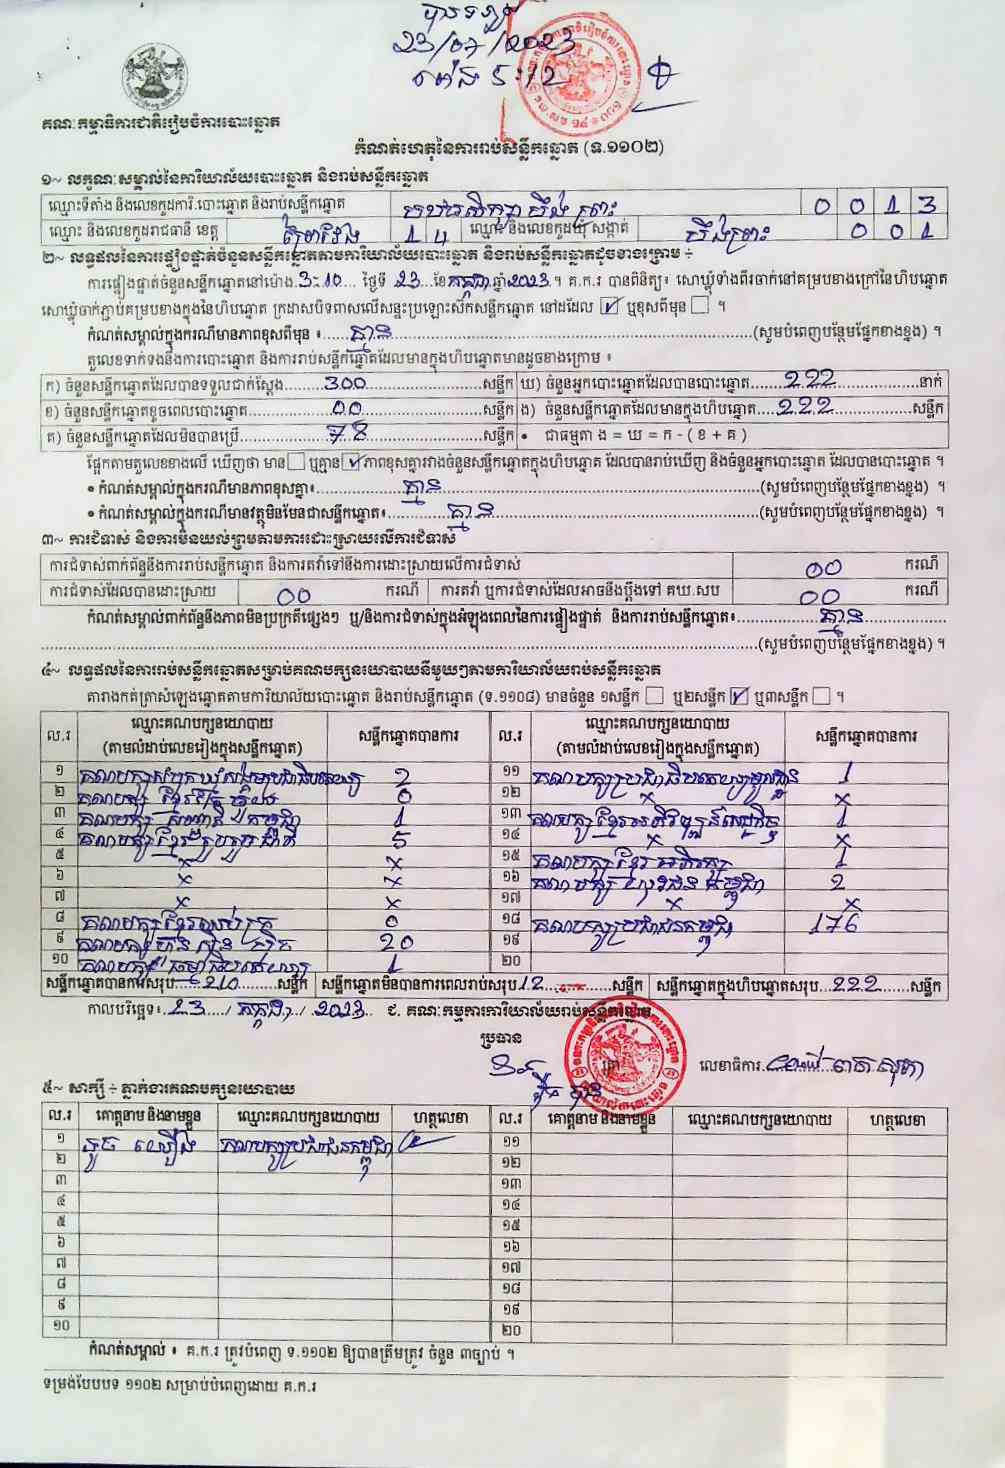 បានទទួល
23/07/2023
ម៉ោង 5:12
គណៈកម្មាធិការជាតិរៀបចំការបោះឆ្នោត
កំណត់ហេតុនៃការរាប់សន្លឹកឆ្នោត (ទ.១១០២)
១~ លក្ខណៈសម្គាល់នៃការិយាល័យបោះឆ្នោត និងរាប់សន្លឹកឆ្នោត
ឈ្មោះទីតាំង និងលេខកូដការិ.បោះឆ្នោត និងរាប់សន្លឹកឆ្នោត បឹងព្រះ 0 0 1 3
ឈ្មោះ និងលេខកូដរាជធានី ខេត្ត ព្រៃវែង 1 4 ឈ្មោះ និងលេខកូដឃុំ សង្កាត់ បឹងព្រះ 0 0 1
២~ លទ្ធផលនៃការផ្ទៀងផ្ទាត់ចំនួនសន្លឹកឆ្នោតតាមការិយាល័យបោះឆ្នោត និងរាប់សន្លឹកឆ្នោតដូចខាងក្រោម ÷
ការផ្ទៀងផ្ទាត់ចំនួនសន្លឹកឆ្នោតនៅម៉ោង 3:10 ថ្ងៃទី 23 ខែ កក្កដា ឆ្នាំ 2023 ។ គ.ក.រ បានពិនិត្យ៖ សោឃ្លុំទាំងពីរចាក់នៅគម្របខាងក្រៅនៃហិបឆ្នោត
សោឃ្លុំចាក់ភ្ជាប់គម្របខាងក្នុងនៃហិបឆ្នោត ក្រដាសបិទពាសលើសន្ទះប្រឡោះស៊កសន្លឹកឆ្នោត នៅដដែល ☑ ឬខុសពីមុន ☐ ។
កំណត់សម្គាល់ក្នុងករណីមានភាពខុសពីមុន ៖ គ្មាន (សូមបំពេញបន្ថែមផ្នែកខាងខ្នង) ។
តួលេខទាក់ទងនឹងការបោះឆ្នោត និងការរាប់សន្លឹកឆ្នោតដែលមានក្នុងហិបឆ្នោតមានដូចខាងក្រោម ៖
ក) ចំនួនសន្លឹកឆ្នោតដែលបានទទួលជាក់ស្តែង 300 សន្លឹក ឃ) ចំនួនអ្នកបោះឆ្នោតដែលបានបោះឆ្នោត 222 នាក់
ខ) ចំនួនសន្លឹកឆ្នោតខូចពេលបោះឆ្នោត 00 សន្លឹក ង) ចំនួនសន្លឹកឆ្នោតដែលមានក្នុងហិបឆ្នោត 222 សន្លឹក
គ) ចំនួនសន្លឹកឆ្នោតដែលមិនបានប្រើ 78 សន្លឹក • ជាធម្មតា ង = ឃ = ក - ( ខ + គ )
ផ្អែកតាមតួលេខខាងលើ ឃើញថា មាន ☐ ឬគ្មាន ☑ ភាពខុសគ្នារវាងចំនួនសន្លឹកឆ្នោតក្នុងហិបឆ្នោត ដែលបានរាប់ឃើញ និងចំនួនអ្នកបោះឆ្នោត ដែលបានបោះឆ្នោត ។
• កំណត់សម្គាល់ក្នុងករណីមានភាពខុសគ្នា៖ គ្មាន (សូមបំពេញបន្ថែមផ្នែកខាងខ្នង) ។
• កំណត់សម្គាល់ក្នុងករណីមានវត្ថុមិនមែនជាសន្លឹកឆ្នោត៖ គ្មាន (សូមបំពេញបន្ថែមផ្នែកខាងខ្នង) ។
៣~ ការជំទាស់ និងការមិនយល់ព្រមតាមការដោះស្រាយលើការជំទាស់
ការជំទាស់ពាក់ព័ន្ធនឹងការរាប់សន្លឹកឆ្នោត និងការតវ៉ាទៅនឹងការដោះស្រាយលើការជំទាស់ 00 ករណី
ការជំទាស់ដែលបានដោះស្រាយ 00 ករណី ការតវ៉ា ឬការជំទាស់ដែលអាចនឹងប្តឹងទៅ គឃ.សប 00 ករណី
កំណត់សម្គាល់ពាក់ព័ន្ធនឹងភាពមិនប្រក្រតីផ្សេងៗ ឬ/និងការជំទាស់ក្នុងអំឡុងពេលនៃការផ្ទៀងផ្ទាត់ និងការរាប់សន្លឹកឆ្នោត៖ គ្មាន
(សូមបំពេញបន្ថែមផ្នែកខាងខ្នង) ។
៤~ លទ្ធផលនៃការរាប់សន្លឹកឆ្នោតសម្រាប់គណបក្សនយោបាយនីមួយៗតាមការិយាល័យរាប់សន្លឹកឆ្នោត
តារាងកត់ត្រាសំឡេងឆ្នោតតាមការិយាល័យបោះឆ្នោត និងរាប់សន្លឹកឆ្នោត (ទ.១១០៨) មានចំនួន ១សន្លឹក ☐ ឬ២សន្លឹក ☑ ឬ៣សន្លឹក ☐ ។
ល.រ ឈ្មោះគណបក្សនយោបាយ (តាមលំដាប់លេខរៀងក្នុងសន្លឹកឆ្នោត) សន្លឹកឆ្នោតបានការ ល.រ ឈ្មោះគណបក្សនយោបាយ (តាមលំដាប់លេខរៀងក្នុងសន្លឹកឆ្នោត) សន្លឹកឆ្នោតបានការ
១ គណបក្សសំបុកឃ្មុំសង្គមប្រជាធិបតេយ្យ 2 ១១ គណបក្សប្រជាធិបតេយ្យមូលដ្ឋាន 1
២ គណបក្ស ខ្មែរ 0 ១២ × ×
៣ គណបក្ស កម្ពុជា 1 ១៣ គណបក្សខ្មែរអភិវឌ្ឍន៍សេដ្ឋកិច្ច 1
៤ គណបក្សខ្មែររួបរួមជាតិ 5 ១៤ × ×
៥ × × ១៥ គណបក្សខ្មែរ 1
៦ × × ១៦ គណបក្ស យុវជនកម្ពុជា 2
៧ × × ១៧ × ×
៨ គណបក្សខ្មែរឈប់ក្រ 0 ១៨ គណបក្សប្រជាជនកម្ពុជា 176
៩ គណបក្សហ្វ៊ុនស៊ិនប៉ិច 20 ១៩
១០ គណបក្សធម្មាធិបតេយ្យ 1 ២០
សន្លឹកឆ្នោតបានការសរុប 210 សន្លឹក សន្លឹកឆ្នោតមិនបានការពេលរាប់សរុប 12 សន្លឹក សន្លឹកឆ្នោតក្នុងហិបឆ្នោតសរុប 222 សន្លឹក
កាលបរិច្ឆេទ៖ 23 / កក្កដា / 2023 ជ. គណៈកម្មការការិយាល័យរាប់សន្លឹកឆ្នោត
ប្រធាន
លេខាធិការ
៥~ សាក្សី ÷ ភ្នាក់ងារគណបក្សនយោបាយ
ល.រ គោត្តនាម និងនាមខ្លួន ឈ្មោះគណបក្សនយោបាយ ហត្ថលេខា ល.រ គោត្តនាម និងនាមខ្លួន ឈ្មោះគណបក្សនយោបាយ ហត្ថលេខា
១ គណបក្សប្រជាជនកម្ពុជា ១១
២ ១២
៣ ១៣
៤ ១៤
៥ ១៥
៦ ១៦
៧ ១៧
៨ ១៨
៩ ១៩
១០ ២០
កំណត់សម្គាល់ ៖ គ.ក.រ ត្រូវបំពេញ ទ.១១០២ ឱ្យបានត្រឹមត្រូវ ចំនួន ៣ច្បាប់ ។
ទម្រង់បែបបទ ១១០២ សម្រាប់បំពេញដោយ គ.ក.រ